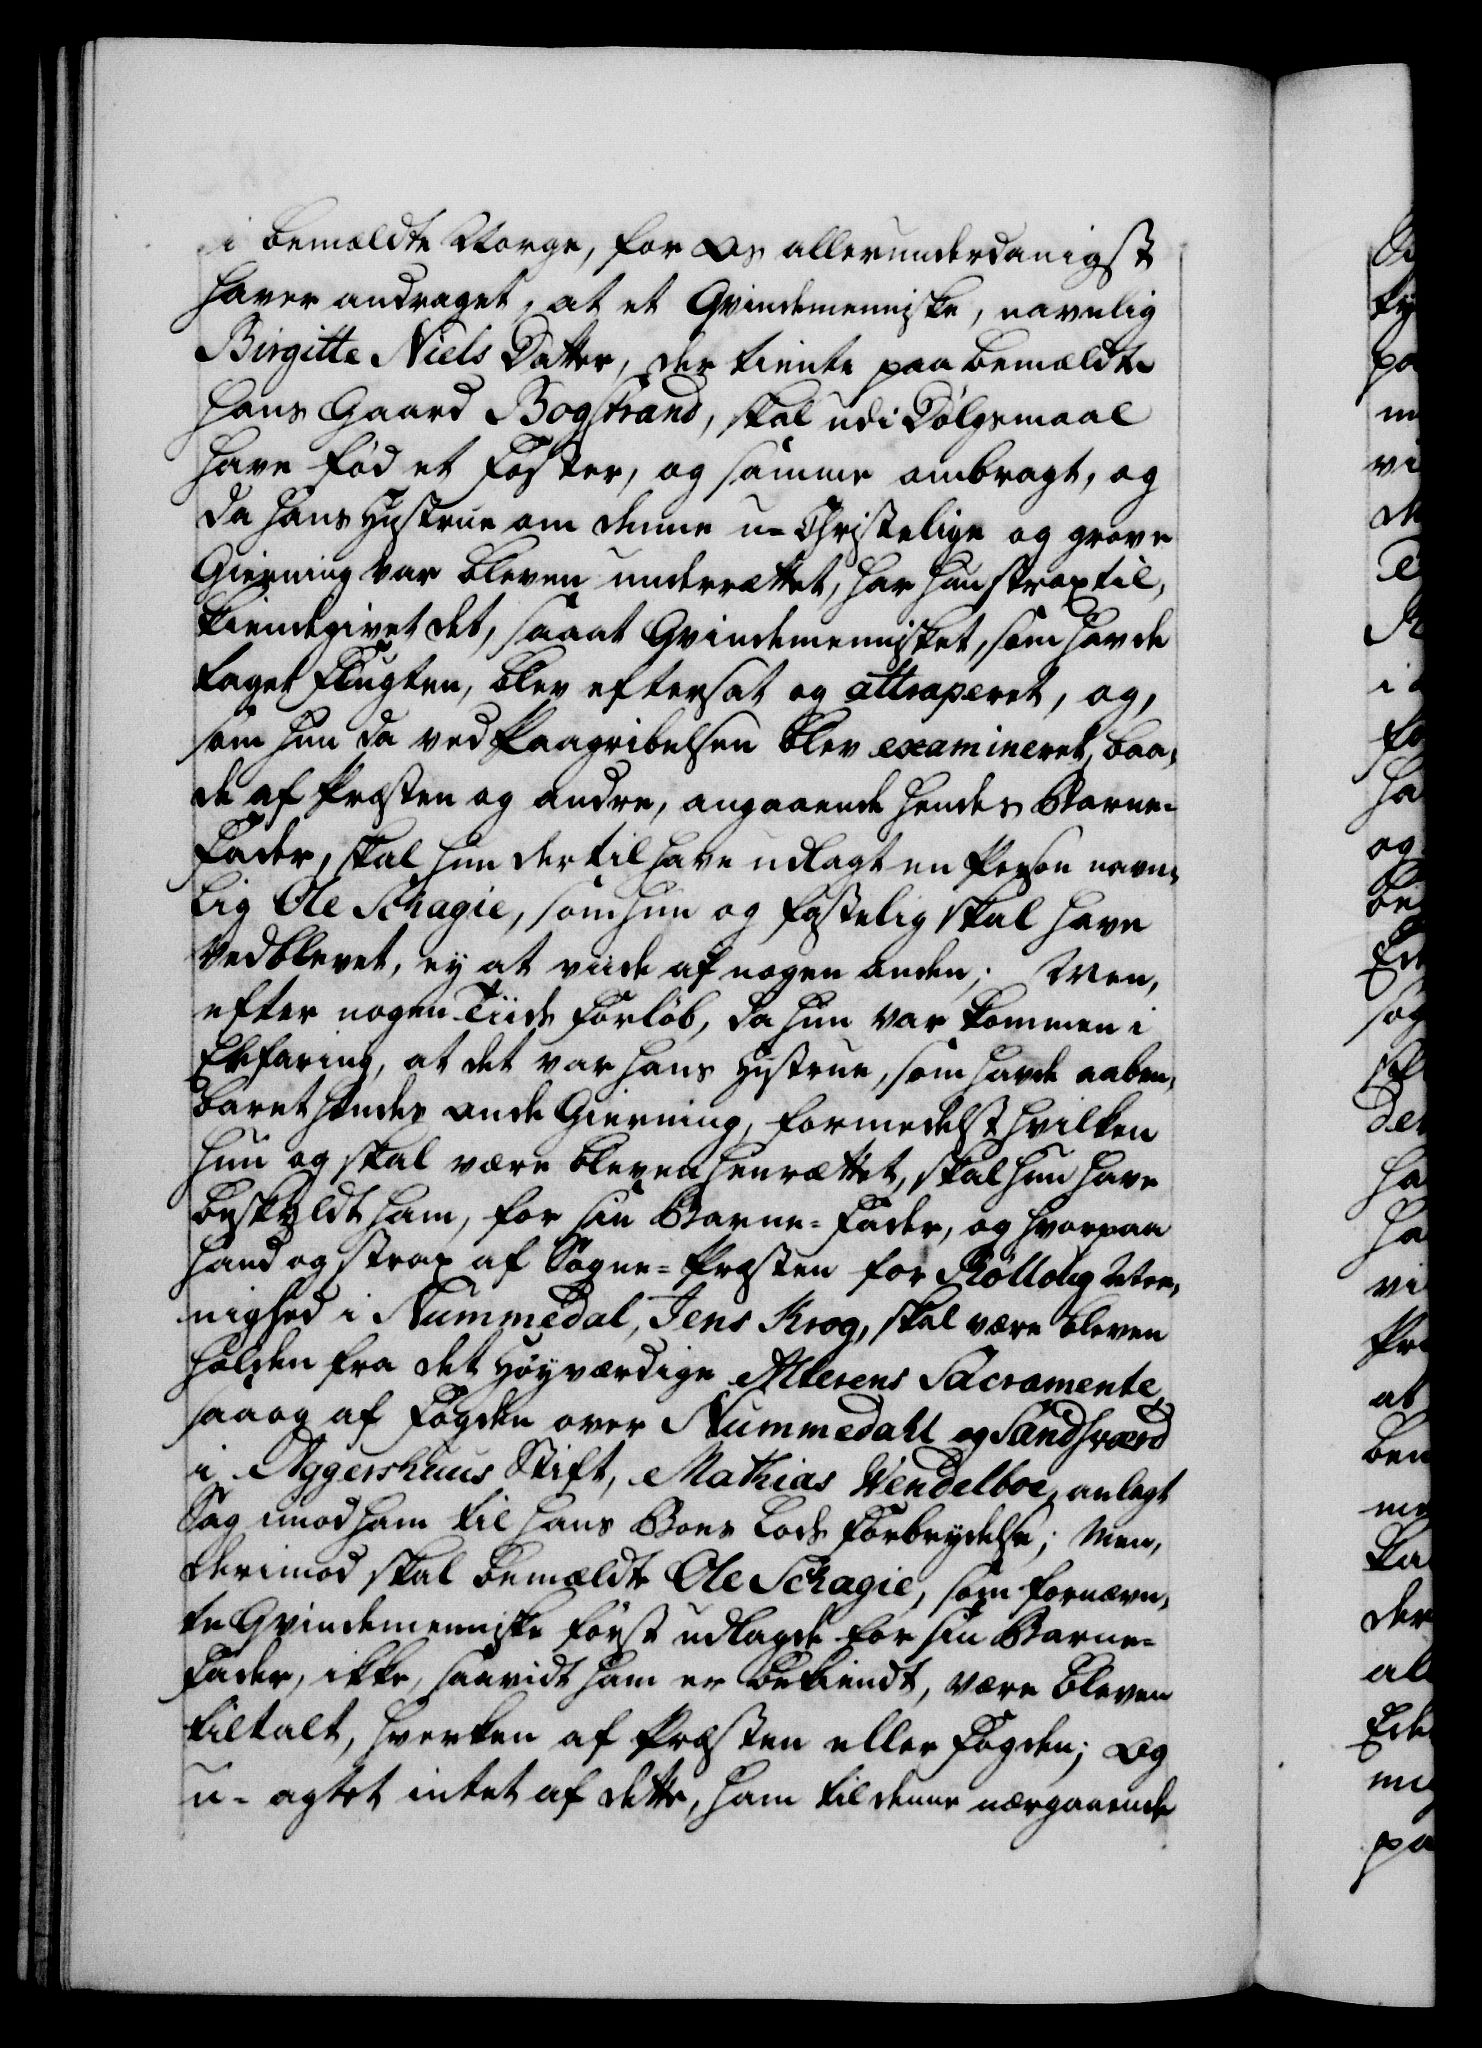 i bemældte Norge, for Os allerunderdanigst
haver andraget, at et Qvindemenniske, navnlig
Birgitte Niels Datter, der tiente paa bemældte
hans Gaard Bogstrand, skal udi Dølgsmaal
have fød et Foster, og samme ombragt, og
da hans Hustrue om denne u-Christelige og grove
Gierning var bleven underrættet, har hun strax til,
kiendegivet det, saa at Qvindemennisket, som havde
taget Flugten, blev eftersat og attraperet, og,
som hun da ved Paagribelsen blev examineret, baa,
de af Præsten og andre, angaaende hendes Barne=
Fader, skal hun dertil have udlagt en Person navn,
lig Ole Schagie, som hun og fastelig skal have
vedblevet, ey at viide af nogen anden; Men,
efter nogen Tiids Forløb, da hun var kommen i
Erfaring, at det var hans Hustrue, som havde aaben,
baret hendes onde Gierning, formedelst hvilken
hun og skal være bleven henrættet, skal hun have
beskyldt ham, for sin Barne=Fader, og hvorpaa
hand og strax af Sogne=Præsten for Rollaug Mee,
nighed i Nummedal, Jens Krog, skal være bleven
holden fra det Høyværdige Alterens Sacramente,
saa og af Fogden over Nummedahl og Sandsværd
i Aggershuus Stift, Mathias Vendelboe, anlagt
Sag imod ham til hans Boes Lods Forbrydelse; Men,
derimod skal bemældte Ole Schagie, som fornævn,
te Qvindemenniske først udlagde for sin Barne=
Fader, ikke, saavidt ham er bekiendt, være bleven
tiltalt, hverken af Præsten eller Fogden; Og
u=agtet intet af dette, ham til denne nærgaaende